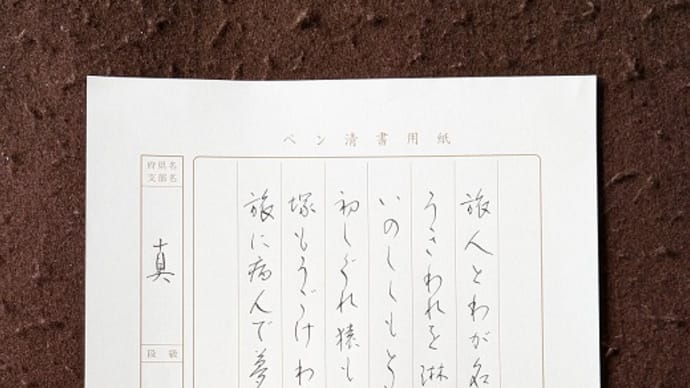 ペン清書用紙
旅人とわが名
うきわれを淋
いのししもと
初しぐれ猿も
塚もうごけわ
旅に病んで夢
府県名
支部名
真
段級